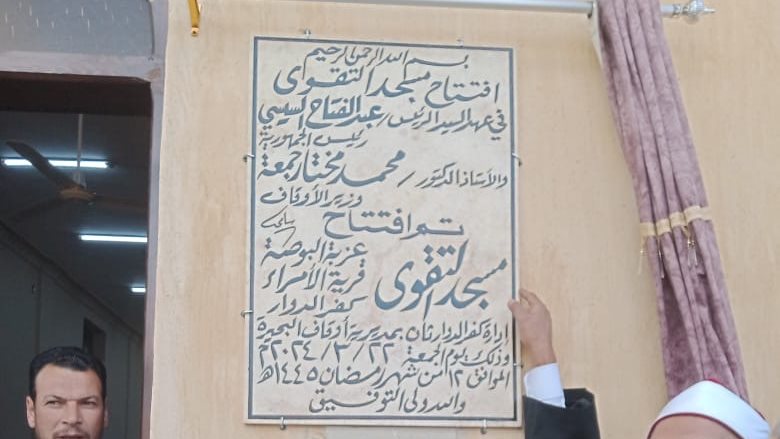 بسم الله الرحمن الرحيم
افتتاح مسجد التقوى
في عهد السيد الرئيس / عبد الفتاح السيسي
رئيس الجمهورية
والأستاذ الدكتور / محمد مختار جمعة
وزير الأوقاف
تم افتتاح
مسجد التقوى
عزبة البوصة
قرية الأمراء
كفر الدوار
إدارة كفر الدوار ثان بمديرية أوقاف البحيرة
وذلك يوم الجمعة ٢٢ / ٣ / ٢٠٢٤م
الموافق ١٢ من شهر رمضان ١٤٤٥هـ
والله ولي التوفيق